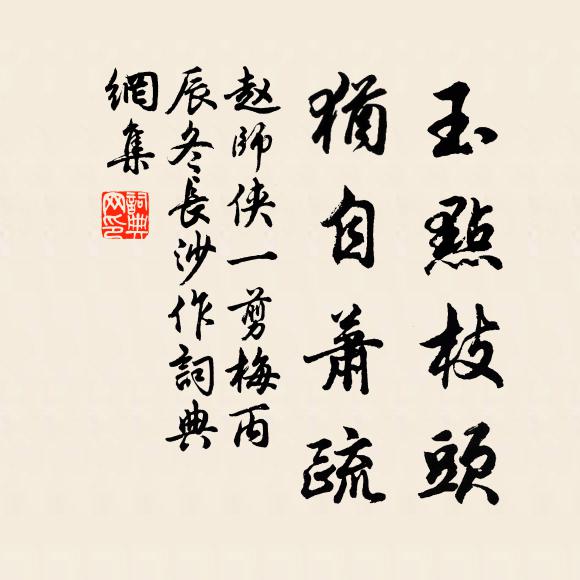 玉點枝頭
猶自蕭疏
赵師俠一剪梅丙
辰冬長沙作詞典
網集
詞典
网印